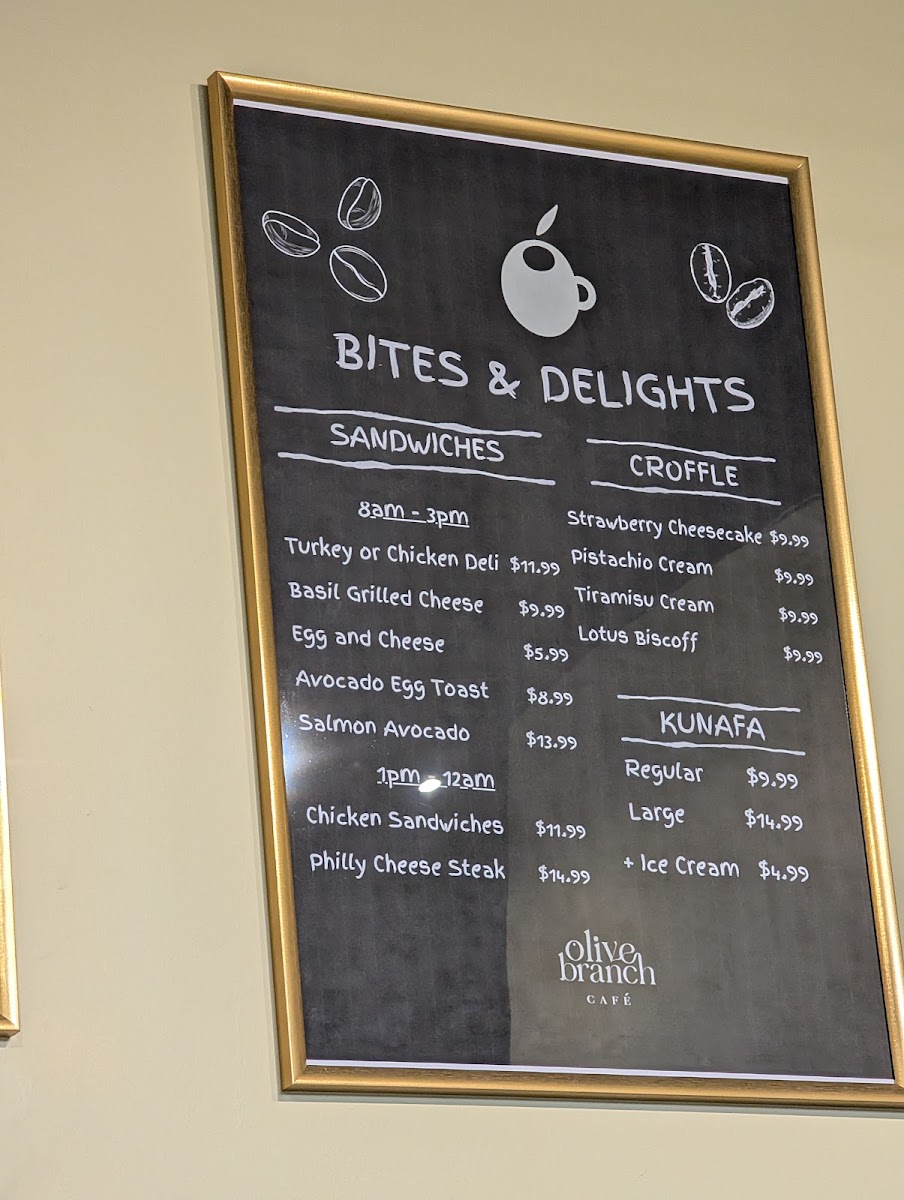 BITES & DELIGHTS
SANDWICHES
8am - 3pm
Turkey or Chicken Deli $11.99
Basil Grilled Cheese $9.99
Egg and Cheese $5.99
Avocado Egg Toast $8.99
Salmon Avocado $13.99
1pm - 12am
Chicken Sandwiches $11.99
Philly Cheese Steak $14.99
CROFFLE
Strawberry Cheesecake $9.99
Pistachio Cream $9.99
Tiramisu Cream $9.99
Lotus Biscoff $9.99
KUNAFA
Regular $9.99
Large $14.99
+ Ice Cream $4.99
olive
branch
CAFÉ